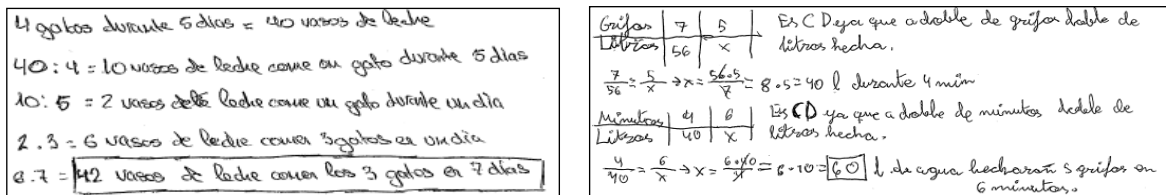 4 gatos durante 5 días = 40 vasos de leche
40 : 4 = 10 vasos de leche come un gato durante 5 días
10 : 5 = 2 vasos de leche come un gato durante un día
2 . 3 = 6 vasos de leche comen 3 gatos en un día
6.7 = 42 vasos de leche comen los 3 gatos en 7 días
Grifos | 7 | 5
Litros | 56 | x
Es CD ya que a doble de grifos doble de
litros hecha.
7/56 = 5/x → x = 56·5/7 = 8·5 = 40 l durante 4 min
Minutos | 4 | 6
Litros | 40 | x
Es CD ya que a doble de minutos doble de
litros hecha.
4/40 = 6/x → x = 6·40/4 = 6·10 = 60 l de agua hecharán 5 grifos en
6 minutos.